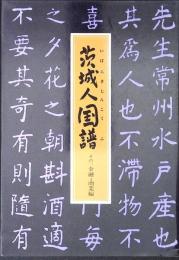 先生常州水戸産也
其爲人也不滞物不
喜
每
之夕花之朝斟酒適
不要其奇有則隨有
いばらきじんこくふ
茨城人国譜
金融・商業編